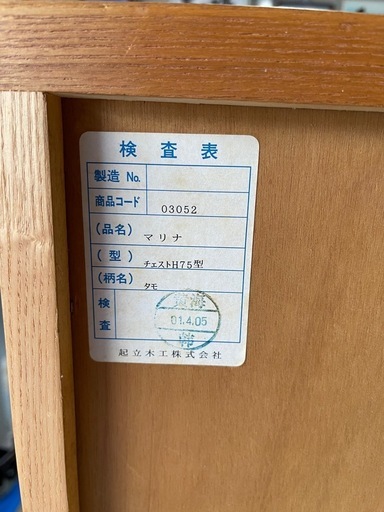 検査表
製造 No.
商品コード 03052
(品名) マリナ
(型) チェストH75型
(柄名) タモ
検査
01.4.05
起立木工株式会社